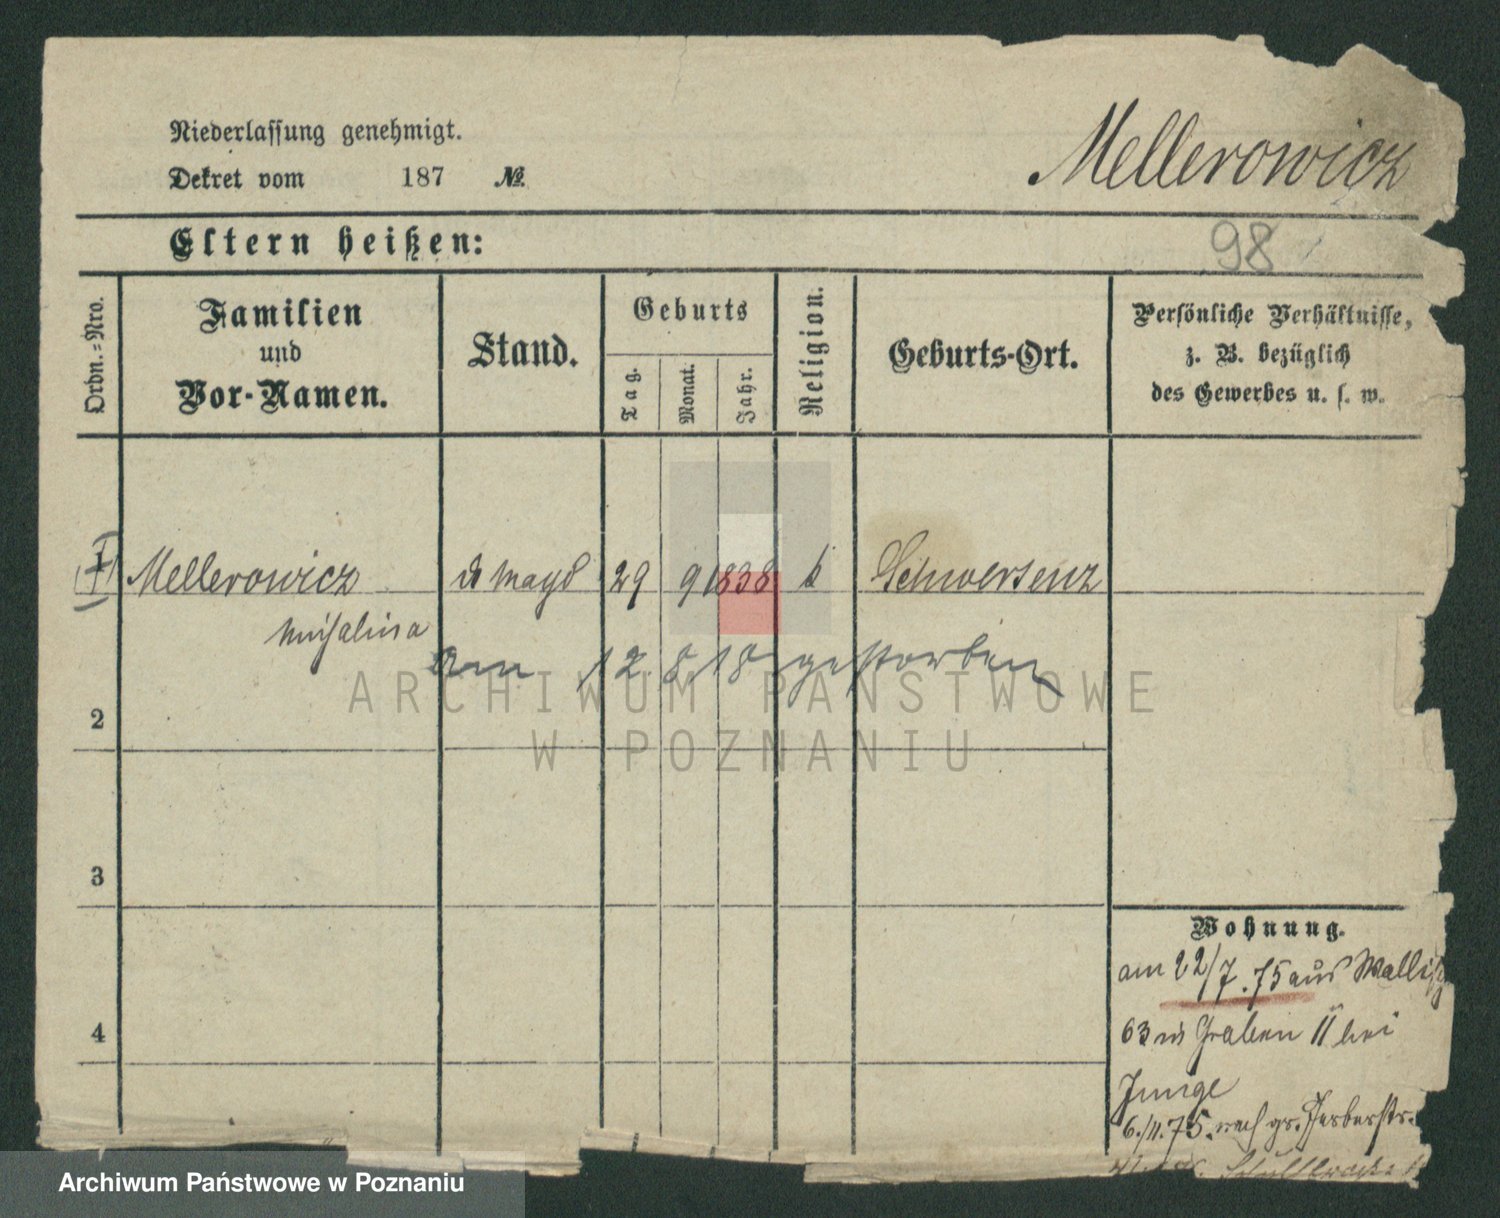 Niederlassung genehmigt.
Dekret vom 187 №.
Mellerowicz
98
Eltern heißen:
Ordn.-Nro.
Familien
und
Vor-Namen.
Stand.
Geburts
Tag.
Monat.
Jahr.
Religion.
Geburts-Ort.
Persönliche Verhältnisse,
z. B. bezüglich
des Gewerbes u. s. w.
1 Mellerowicz Magd 29 9 1838 k Schwersenz
Michalina
am 12 8 18 gestorben
ARCHIWUM PAŃSTWOWE
W POZNANIU
2
3
4
Wohnung.
am 22/7.75 aus Wallisch
63 in Graben 11 bei
Junge
6./11.75. nach gr. Gerberstr.
Archiwum Państwowe w Poznaniu